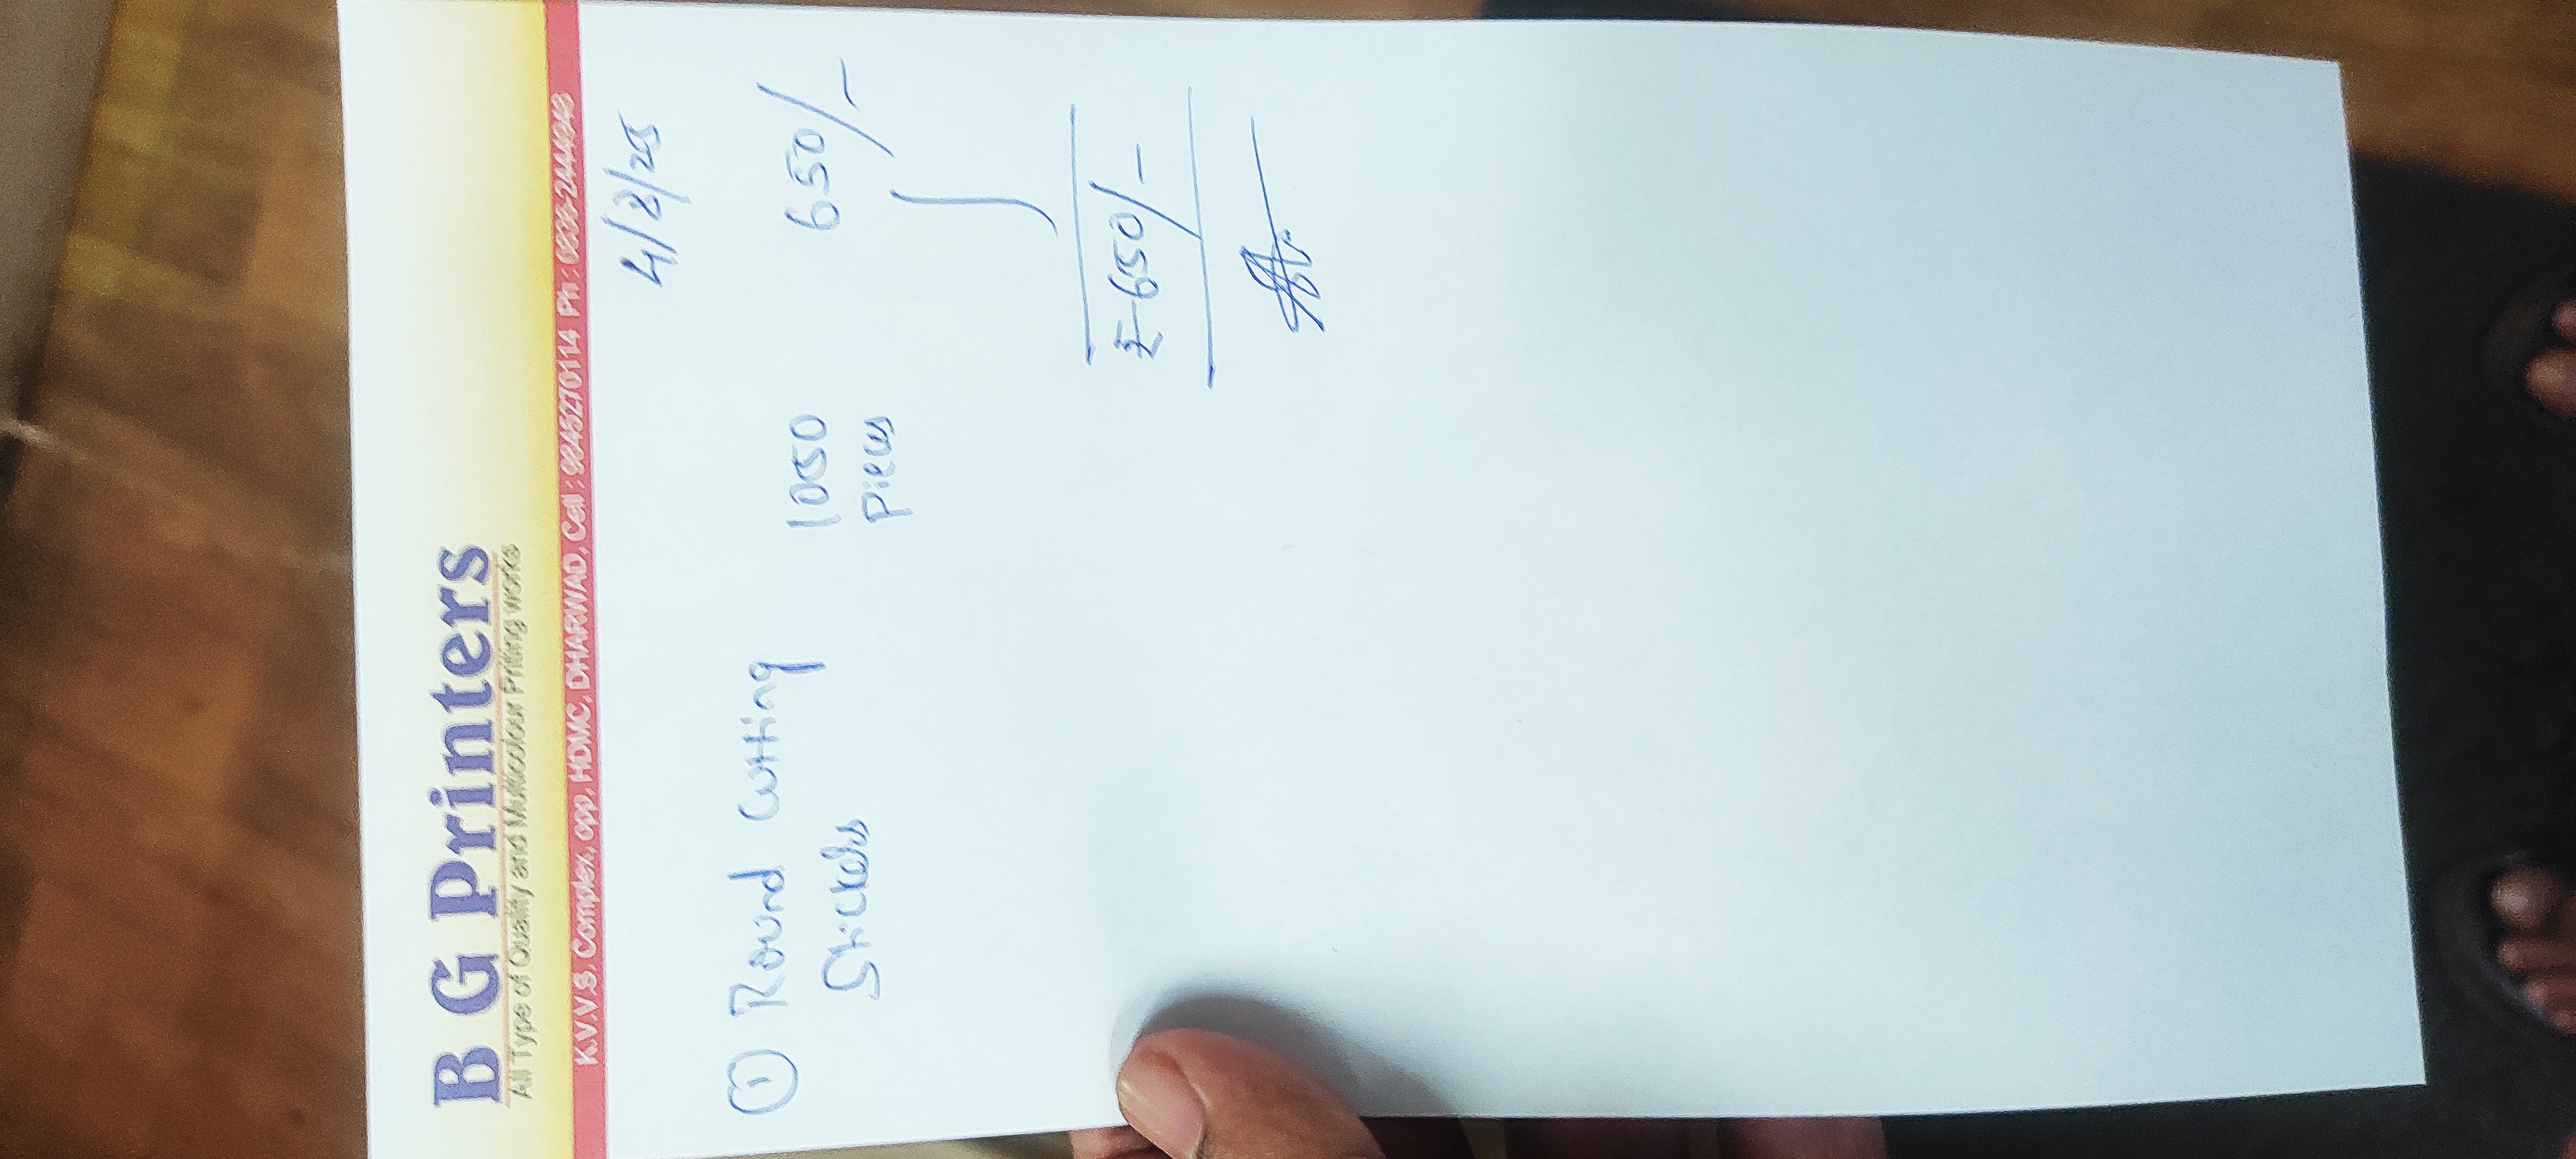 B G Printers
All Type of Quality and Multicolour Priting works
K.V.V.S. Complex, opp. HDMC, DHARWAD, Cell : 9845270114 Ph : 0836-2444948
4/8/25
① Round Cutting
Stickers
1050
pieces
650/-
₹650/-